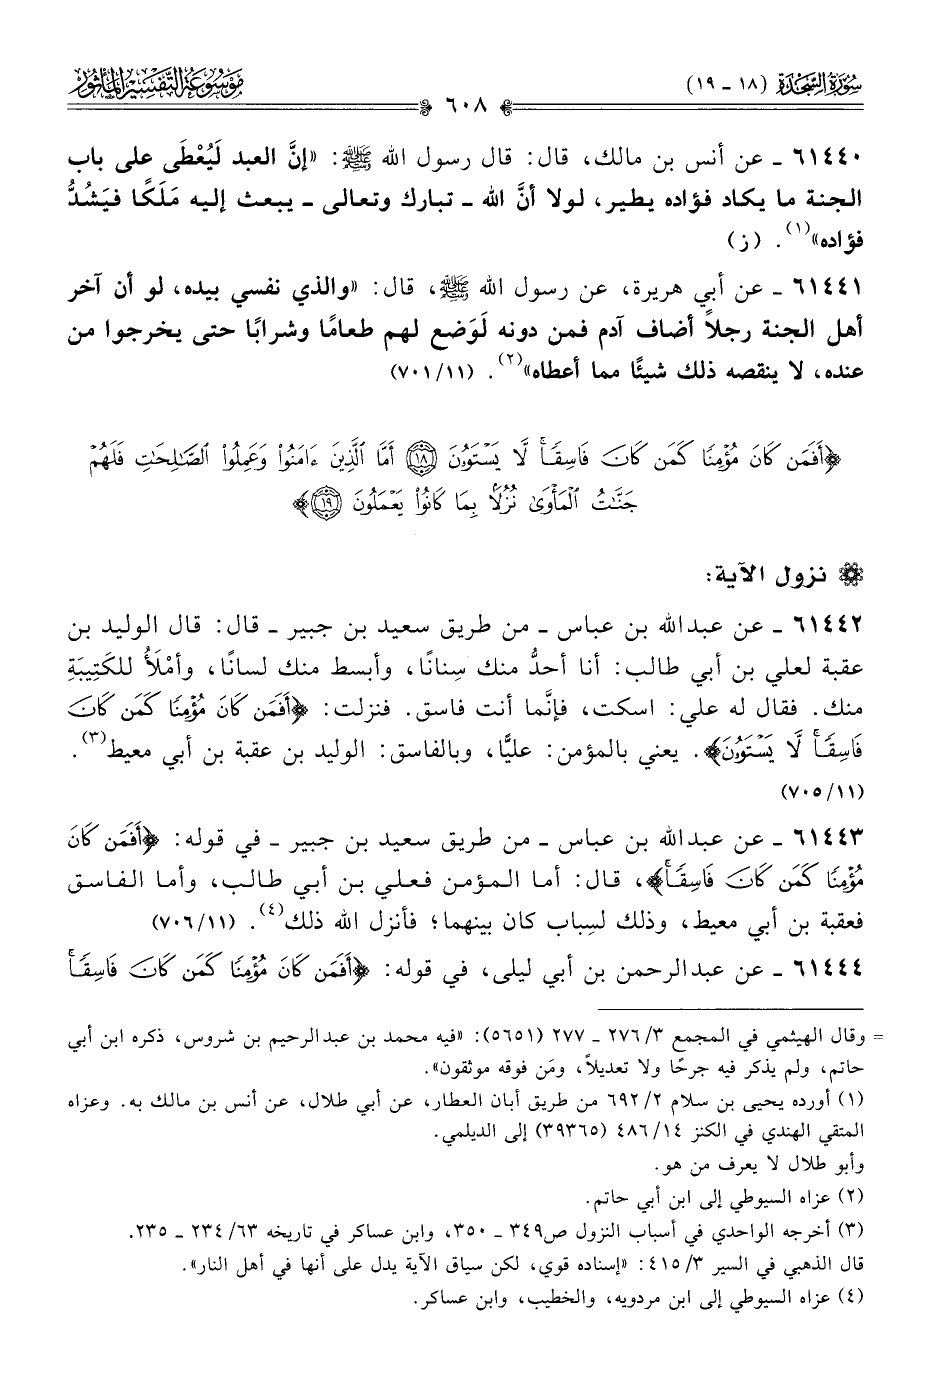 سُورَةُ السَّجْدَةِ (١٨ - ١٩)
٦٠٨
مَوْسُوعَةُ التَّفْسِيرِ المَأْثُورِ
٦١٤٤٠ ـ عن أنس بن مالك، قال: قال رسول الله ﷺ: «إنَّ العبد لَيُعْطَى على باب
الجنة ما يكاد فؤاده يطير، لولا أنَّ الله ـ تبارك وتعالى ـ يبعث إليه مَلَكًا فيَشُدُّ
فؤاده»(١). (ز)
٦١٤٤١ ـ عن أبي هريرة، عن رسول الله ﷺ، قال: «والذي نفسي بيده، لو أن آخر
أهل الجنة رجلاً أضاف آدم فمن دونه لَوَضع لهم طعامًا وشرابًا حتى يخرجوا من
عنده، لا ينقصه ذلك شيئًا مما أعطاه»(٢). (٧٠١/١١)
﴿أَفَمَن كَانَ مُؤْمِنًا كَمَن كَانَ فَاسِقًاۚ لَّا يَسْتَوُۥنَ ١٨ أَمَّا ٱلَّذِينَ ءَامَنُوا۟ وَعَمِلُوا۟ ٱلصَّٰلِحَٰتِ فَلَهُمْ
جَنَّٰتُ ٱلْمَأْوَىٰ نُزُلًۢا بِمَا كَانُوا۟ يَعْمَلُونَ ١٩﴾
نزول الآية:
٦١٤٤٢ ـ عن عبدالله بن عباس ـ من طريق سعيد بن جبير ـ قال: قال الوليد بن
عقبة لعلي بن أبي طالب: أنا أحدُّ منك سِنانًا، وأبسط منك لسانًا، وأمْلَأُ للكَتِيبَةِ
منك. فقال له علي: اسكت، فإنَّما أنت فاسق. فنزلت: ﴿أَفَمَن كَانَ مُؤْمِنًا كَمَن كَانَ
فَاسِقًاۚ لَّا يَسْتَوُۥنَ﴾. يعني بالمؤمن: عليًّا، وبالفاسق: الوليد بن عقبة بن أبي معيط(٣).
(٧٠٥/١١)
٦١٤٤٣ ـ عن عبدالله بن عباس ـ من طريق سعيد بن جبير ـ في قوله: ﴿أَفَمَن كَانَ
مُؤْمِنًا كَمَن كَانَ فَاسِقًاۚ﴾، قال: أما المؤمن فعلي بن أبي طالب، وأما الفاسق
فعقبة بن أبي معيط، وذلك لسِباب كان بينهما؛ فأنزل الله ذلك(٤). (٧٠٦/١١)
٦١٤٤٤ ـ عن عبدالرحمن بن أبي ليلى، في قوله: ﴿أَفَمَن كَانَ مُؤْمِنًا كَمَن كَانَ فَاسِقًاۚ
= وقال الهيثمي في المجمع ٢٧٦/٣ ـ ٢٧٧ (٥٦٥١): «فيه محمد بن عبدالرحيم بن شروس، ذكره ابن أبي
حاتم، ولم يذكر فيه جرحًا ولا تعديلاً، ومَن فوقه موثقون».
(١) أورده يحيى بن سلام ٦٩٢/٢ من طريق أبان العطار، عن أبي طلال، عن أنس بن مالك به. وعزاه
المتقي الهندي في الكنز ٤٨٦/١٤ (٣٩٣٦٥) إلى الديلمي.
وأبو طلال لا يعرف من هو.
(٢) عزاه السيوطي إلى ابن أبي حاتم.
(٣) أخرجه الواحدي في أسباب النزول ص٣٤٩ ـ ٣٥٠، وابن عساكر في تاريخه ٢٣٤/٦٣ ـ ٢٣٥.
قال الذهبي في السير ٤١٥/٣: «إسناده قوي، لكن سياق الآية يدل على أنها في أهل النار».
(٤) عزاه السيوطي إلى ابن مردويه، والخطيب، وابن عساكر.